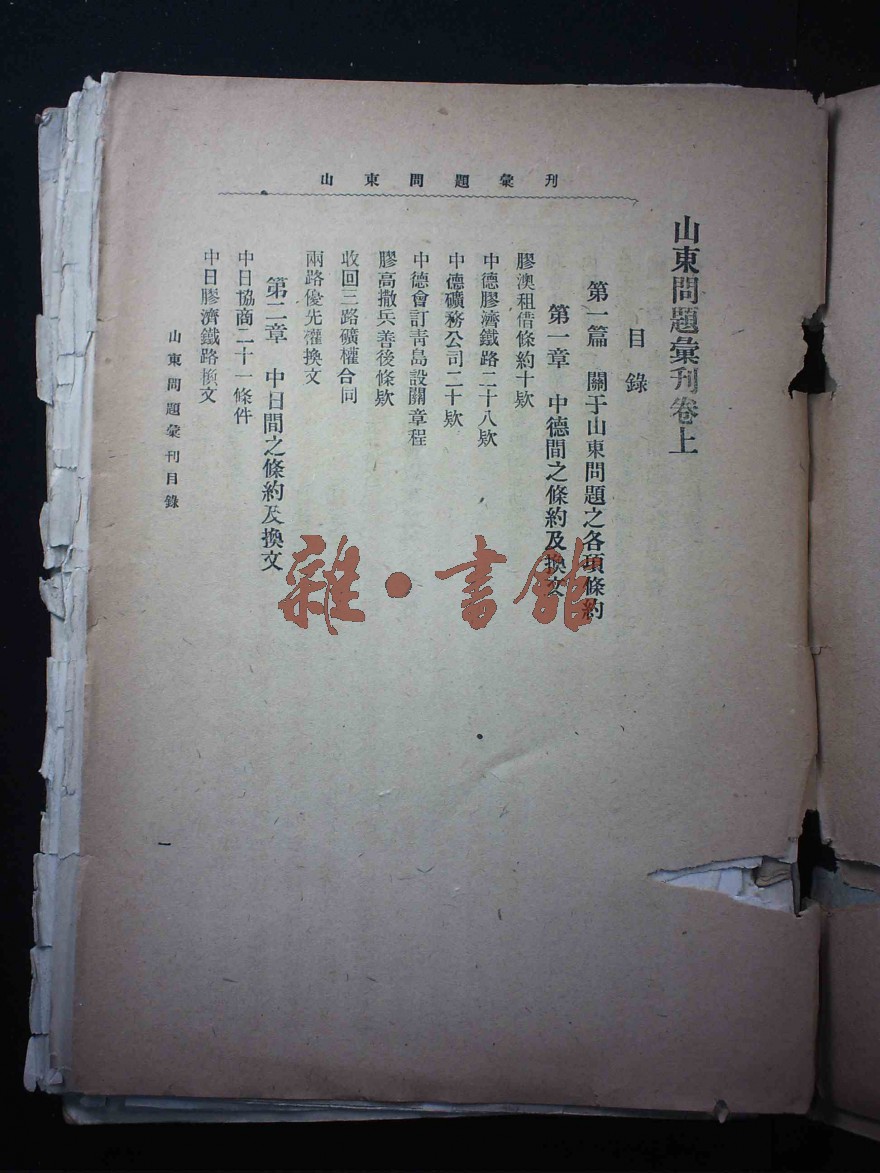 山東問題彙刊
山東問題彙刊卷上
目錄
第一篇 關于山東問題之各項條約
第一章 中德間之條約及換文
膠澳租借條約十欵
中德膠濟鐵路二十八欵
中德礦務公司二十欵
中德會訂靑島設關章程
膠高撒兵善後條欵
收回三路礦權合同
兩路優先權換文
第二章 中日間之條約及換文
中日協商二十一條件
中日膠濟鐵路換文
山東問題彙刊目錄
一
雜·書館